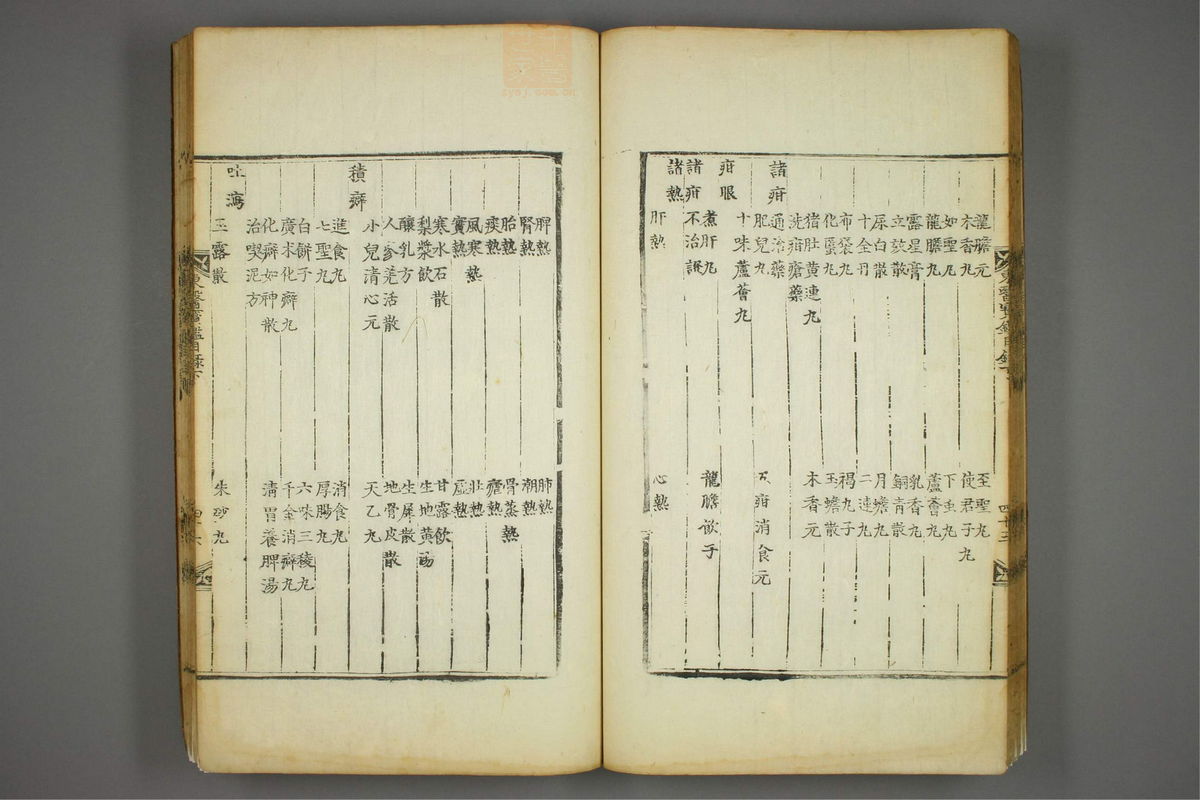 龍膽元 至聖丸
木香丸 使君子丸
如聖丸 下虫丸
龍膽丸 蘆薈丸
露星膏 乳香丸
立效散 銅青散
尿白散 月蟾丸
十全丹 二連丸
布袋丸 褐丸子
化䘌丸 玉蟾散
猪肚黃連丸 木香元
洗疳瘡藥
諸疳
通治藥
肥兒丸 五疳消食元
十味蘆薈丸
疳眼
煮肝丸 龍膽飮子
諸疳不治證
諸熱
肝熱 心熱
脾熱 肺熱
腎熱 潮熱
胎熱 骨蒸熱
痰熱 瘧熱
風寒熱 壯熱
實熱 虛熱
寒水石散 甘露飮
梨漿飮 生地黃湯
釀乳方 生犀散
人參羌活散 地骨皮散
小兒清心元 天乙丸
積癖
進食丸 消食丸
七聖丸 厚腸丸
白餠子 六味三稜丸
廣朮化癖丸 千金消癖丸
化癖如神散 淸胃養脾湯
治喫泥方
吐瀉
玉露散 朱砂丸
東醫寶鑑目錄下 四十六